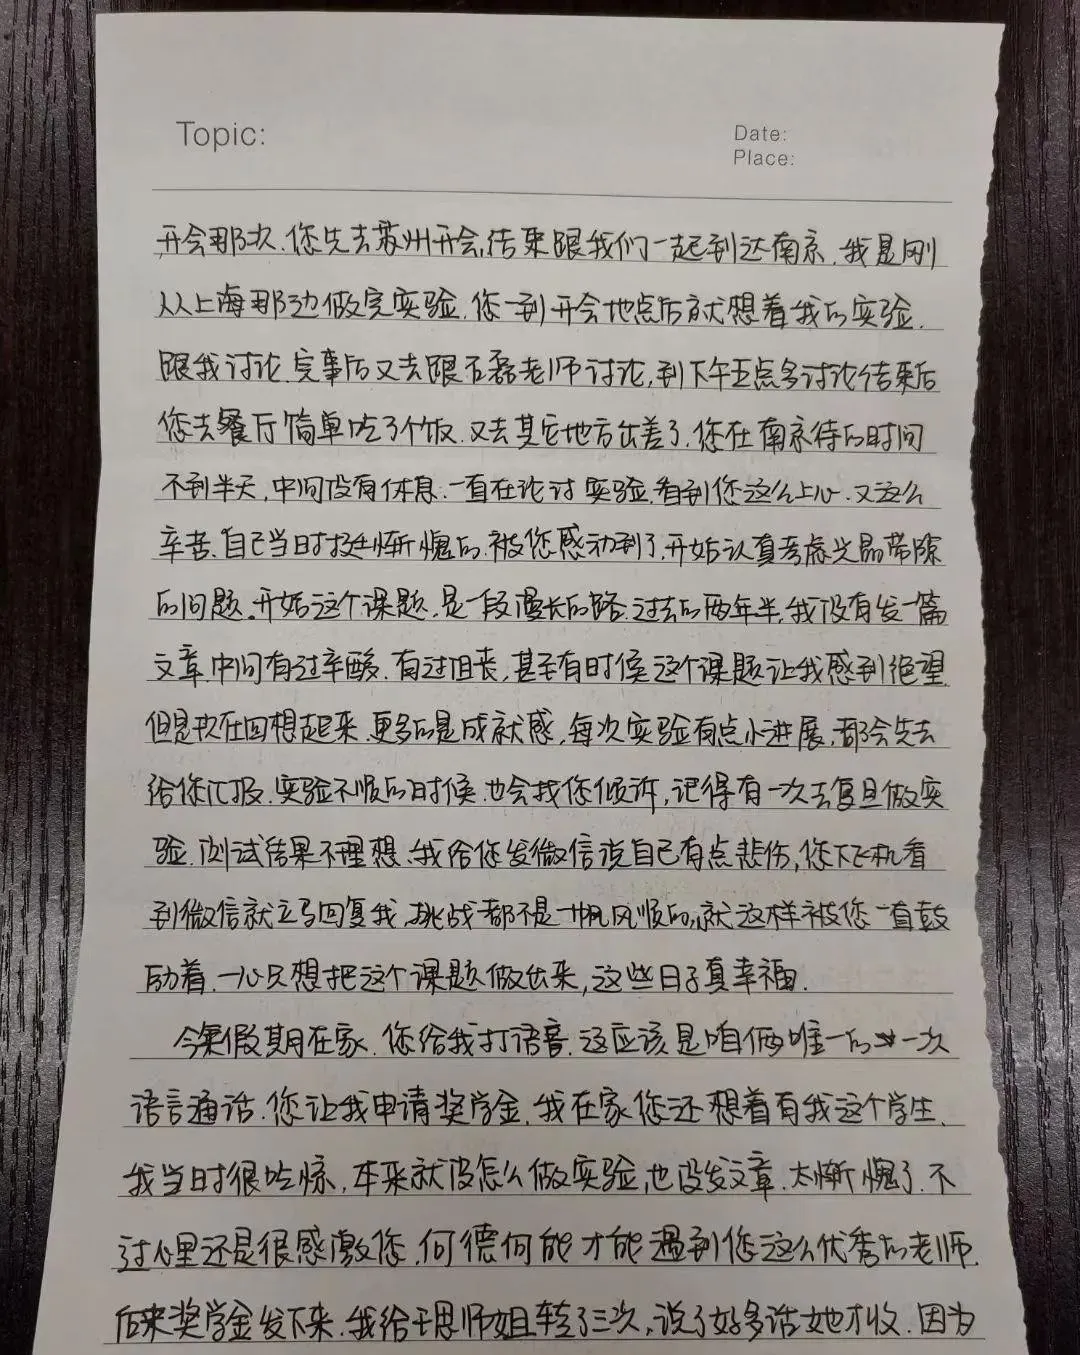 Topic:
Date:
Place:
开会那次.您先去苏州开会,结束跟我们一起到达南京.我是刚
从上海那边做完实验.您一到开会地点后就想着我的实验.
跟我讨论.完事后又去跟石磊老师讨论,到下午五点多讨论结束后
您去餐厅简单吃了个饭.又去其它地方出差了.您在南京待的时间
不到半天,中间没有休息.一直在论讨实验.看到您这么上心.又这么
辛苦.自己当时挺惭愧的.被您感动到了.开始认真考虑光晶带隙
的问题。开始这个课题.是一段漫长的路.过去的两年半,我没有发一篇
文章.中间有过辛酸.有过沮丧,甚至有时候这个课题让我感到绝望.
但是现在回想起来.更多的是成就感,每次实验有点小进展,都会先去
给您汇报.实验不顺的时候.也会找您倾诉,记得有一次去复旦做实
验.测试结果不理想.我给您发微信说自己有点悲伤,您下飞机看
到微信就立马回复我,挑战都不是一帆风顺的,就这样被您一直鼓
励着.一心只想把这个课题做出来,这些日子真幸福.
今年假期在家.您给我打语音.这应该是咱俩唯一的一次
语言通话.您让我申请奖学金.我在家您还想着有我这个学生.
我当时很吃惊.本来就没怎么做实验,也没发文章.太惭愧了.不
过心里还是很感激您.何德何能才能遇到您这么优秀的老师.
后来奖学金发下来.我给王思师姐转了三次,说了好多话她才收.因为